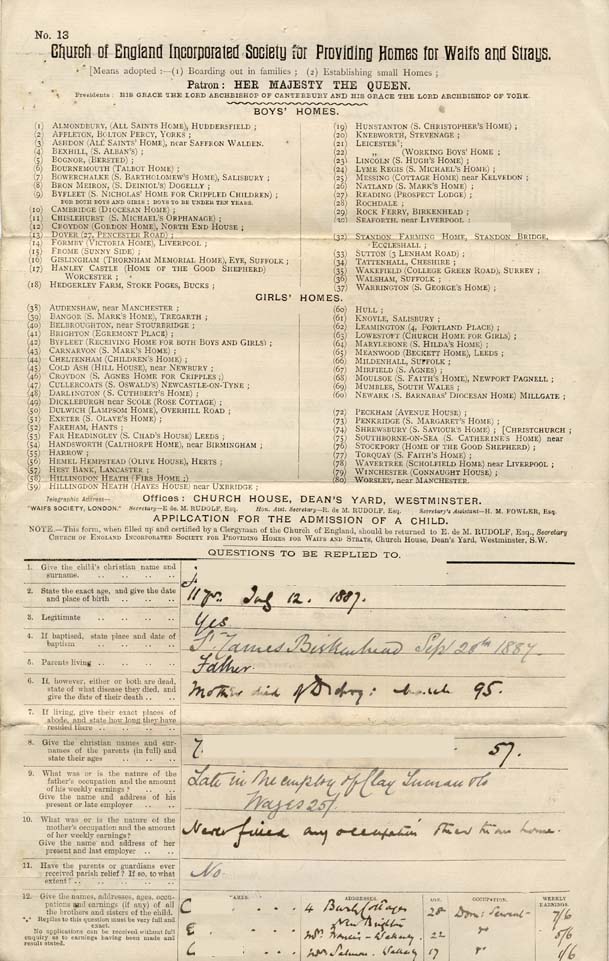 No. 13
Church of England Incorporated Society for Providing Homes for Waifs and Strays.
[Means adopted :—(1) Boarding out in families ; (2) Establishing small Homes ;
Patron: HER MAJESTY THE QUEEN.
Presidents : HIS GRACE THE LORD ARCHBISHOP OF CANTERBURY AND HIS GRACE THE LORD ARCHBISHOP OF YORK.
BOYS' HOMES.
(1) ALMONDBURY, (ALL SAINTS HOME), HUDDERSFIELD ;
(2) APPLETON, BOLTON PERCY, YORKS ;
(3) ASHDON (ALL SAINTS' HOME), near SAFFRON WALDEN.
(4) BEXHILL, (S. ALBAN'S) ;
(5) BOGNOR, (BERSTED) ;
(6) BOURNEMOUTH (TALBOT HOME) ;
(7) BOWERCHALKE (S. BARTHOLOMEW'S HOME), SALISBURY ;
(8) BRON MEIRON, (S. DEINIOL'S) DOGELLY ;
(9) BYFLEET (S. NICHOLAS' HOME FOR CRIPPLED CHILDREN) ;
FOR BOTH BOYS AND GIRLS ; BOYS TO BE UNDER TEN YEARS.
(10) CAMBRIDGE (DIOCESAN HOME) ;
(11) CHISLEHURST (S. MICHAEL'S ORPHANAGE) ;
(12) CROYDON (GORDON HOME), NORTH END HOUSE ;
(13) DOVER (27, PENCESTER ROAD) ;
(14) FORMBY (VICTORIA HOME), LIVERPOOL ;
(15) FROME (SUNNY SIDE) ;
(16) GISLINGHAM (THORNHAM MEMORIAL HOME), EYE, SUFFOLK ;
(17) HANLEY CASTLE (HOME OF THE GOOD SHEPHERD)
WORCESTER ;
(18) HEDGERLEY FARM, STOKE POGES, BUCKS ;
(19) HUNSTANTON (S. CHRISTOPHER'S HOME) ;
(20) KNEBWORTH, STEVENAGE ;
(21) LEICESTER ;
(22) „ (WORKING BOYS' HOME ;
(23) LINCOLN (S. HUGH'S HOME) ;
(24) LYME REGIS (S. MICHAEL'S HOME) ;
(25) MESSING (COTTAGE HOME) near KELVEDON ;
(26) NATLAND (S. MARK'S HOME) ;
(27) READING (PROSPECT LODGE) ;
(28) ROCHDALE ;
(29) ROCK FERRY, BIRKENHEAD ;
(30) SEAFORTH, near LIVERPOOL ;
(32) STANDON FARMING HOME, STANDON BRIDGE,
ECCLESHALL ;
(33) SUTTON (3 LENHAM ROAD) ;
(34) TATTENHALL, CHESHIRE ;
(35) WAKEFIELD (COLLEGE GREEN ROAD), SURREY ;
(36) WALSHAM, SUFFOLK ;
(37) WARRINGTON (S. GEORGE'S HOME) ;
GIRLS' HOMES.
(38) AUDENSHAW, near MANCHESTER ;
(39) BANGOR (S. MARK'S HOME), TREGARTH ;
(40) BELBROUGHTON, near STOURBRIDGE ;
(41) BRIGHTON (EGREMONT PLACE) ;
(42) BYFLEET (RECEIVING HOME FOR BOTH BOYS AND GIRLS) ;
(43) CARNARVON (S. MARK'S HOME) ;
(44) CHELTENHAM (CHILDREN'S HOME) ;
(45) COLD ASH (HILL HOUSE), near NEWBURY ;
(46) CROYDON (S. AGNES HOME FOR CRIPPLES,) ;
(47) CULLERCOATS (S. OSWALD'S) NEWCASTLE-ON-TYNE ;
(48) DARLINGTON (S. CUTHBERT'S HOME) ;
(49) DICKLEBURGH near SCOLE (ROSE COTTAGE) ;
(50) DULWICH (LAMPSOM HOME), OVERHILL ROAD ;
(51) EXETER (S. OLAVE'S HOME) ;
(52) FAREHAM, HANTS ;
(53) FAR HEADINGLEY (S. CHAD'S HOUSE) LEEDS ;
(54) HANDSWORTH (CALTHORPE HOME), near BIRMINGHAM ;
(55) HARROW ;
(56) HEMEL HEMPSTEAD (OLIVE HOUSE), HERTS ;
(57) HEST BANK, LANCASTER ;
(58) HILLINGDON HEATH (FIRS HOME ;
(59) HILLINGDON HEATH (HAYES HOME) near UXBRIDGE ;
(60) HULL ;
(61) KNOYLE, SALISBURY ;
(62) LEAMINGTON (4, PORTLAND PLACE) ;
(63) LOWESTOFT (CHURCH HOME FOR GIRLS) ;
(64) MARYLEBONE (S. HILDA'S HOME) ;
(65) MEANWOOD (BECKETT HOME), LEEDS ;
(66) MILDENHALL, SUFFOLK ;
(67) MIRFIELD (S. AGNES) ;
(68) MOULSOE (S. FAITH'S HOME), NEWPORT PAGNELL ;
(69) MUMBLES, SOUTH WALES ;
(60) NEWARK (S. BARNABAS' DIOCESAN HOME) MILLGATE ;
(72) PECKHAM (AVENUE HOUSE) ;
(73) PENKRIDGE (S. MARGARET'S HOME) ;
(74) SHREWSBURY (S. SAVIOUR'S HOME) ; [CHRISTCHURCH ;
(75) SOUTHBORNE-ON-SEA (S. CATHERINE'S HOME) near
(76) STOCKPORT (HOME OF THE GOOD SHEPHERD) ;
(77) TORQUAY (S. FAITH'S HOME) ;
(78) WAVERTREE (SCHOLFIELD HOMES) near LIVERPOOL ;
(79) WINCHESTER (CONNAUGHT HOUSE) ;
(80) WORSLEY, near MANCHESTER.
Telegraphic Address— Offices: CHURCH HOUSE, DEAN'S YARD, WESTMINSTER.
"WAIFS SOCIETY, LONDON." Secretary—E. de M. RUDOLF, Esq. Hon. Asst. Secretary—R. de M. RUDOLF, Esq. Secretary's Assistant—H. M. FOWLER, Esq.
APPLICATION FOR THE ADMISSION OF A CHILD.
NOTE.—This form, when filled up and certified by a Clergyman of the Church of England, should be returned to E. de M. RUDOLF, Esq., Secretary
CHURCH OF ENGLAND INCORPORATED SOCIETY FOR PROVIDING HOMES FOR WAIFS AND STRAYS, Church House, Dean's Yard, Westminster, S.W.
QUESTIONS TO BE REPLIED TO.
1. Give the child's christian name and
surname.
2. State the exact age, and give the date
and place of birth
11 yrs. July 12. 1887.
3. Legitimate
Yes
4. If baptised, state place and date of
baptism
St. James Birkenhead Sept 28th 1887.
5. Parents living
Father.
6. If, however, either or both are dead,
state of what disease they died, and
give the date of their death
Mother died of Dropsy: March 95.
7. If living, give their exact places of
abode, and state how long they have
resided there
8. Give the christian names and sur-
names of the parents (in full) and
state their ages
57.
9. What was or is the nature of the
father's occupation and the amount
of his weekly earnings?
Give the name and address of his
present or late employer
Late in the employ of Clay Inman &Co
Wages 25/.
10. What was or is the nature of the
mother's occupation and the amount
of her weekly earnings?
Give the name and address of her
present and last employer
Never filled any occupation other than home.
11. Have the parents or guardians ever
received parish relief? If so, to what
extent?
No.
12. Give the names, addresses, ages, occu-
pations and earnings (if any) of all
the brothers and sisters of the child.
Replies to this question must be very full and
exact.
No applications can be received without full
enquiry as to earnings having been made and
result stated.
NAMES. ADDRESSES. AGE. OCCUPATION. WEEKLY EARNINGS.
C 4 Cottages 28 Dom: Servant 7/6
New Brighton
E Mrs Francis - Wallasey 22 " 5/6
C Mrs Salmon - Wallasey 17 " 1/6